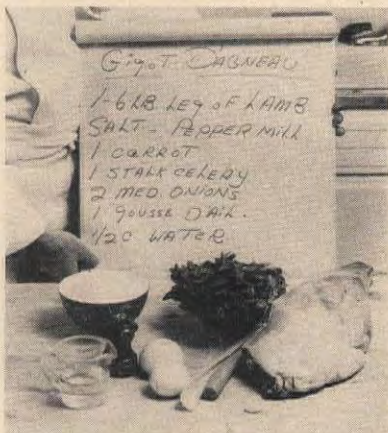 GigoT DAGNEAU
1-6LB LEg oF LAMB
SALT - PEPPER MiLL
1 CARROT
1 STALK CELERY
2 MED ONIONS
1 gousse D'AiL.
1/2 C WATER